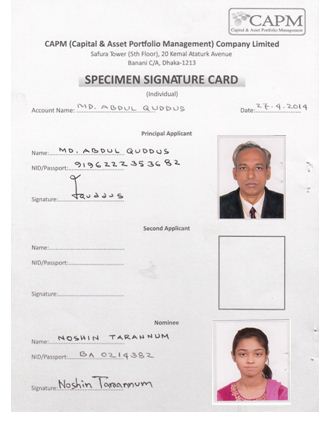 CAPM
Capital & Asset Portfolio Management
CAPM (Capital & Asset Portfolio Management) Company Limited
Safura Tower (5th Floor), 20 Kemal Ataturk Avenue
Banani C/A, Dhaka-1213
SPECIMEN SIGNATURE CARD
(Individual)
Account Name: MD. ABDUL QUDDUS Date: 27.4.2014
Principal Applicant
Name: MD. ABDUL QUDDUS
NID/Passport: 9196222353682
Signature: Quddus
Second Applicant
Name:
NID/Passport:
Signature:
Nominee
Name: NOSHIN TARANNUM
NID/Passport: BA 0214382
Signature: Noshin Tarannum